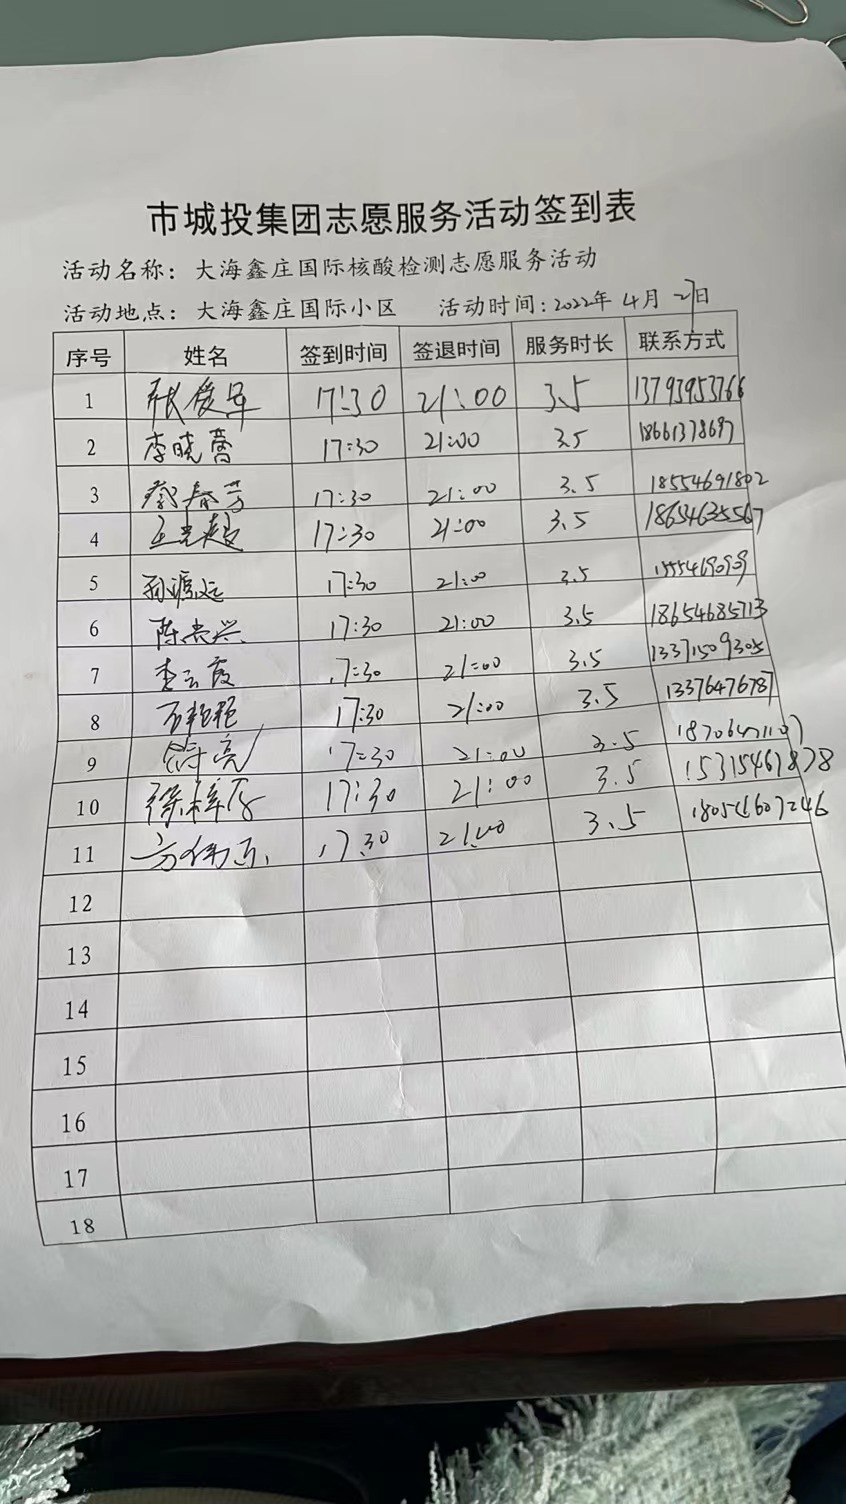 市城投集团志愿服务活动签到表
活动名称：大海鑫庄国际核酸检测志愿服务活动
活动地点：大海鑫庄国际小区 活动时间：2022年4月27日
序号 姓名 签到时间 签退时间 服务时长 联系方式
1 张俊军 17:30 21:00 3.5 13793953766
2 李晓 17:30 21:00 3.5 18661378697
3 蔡春芳 17:30 21:00 3.5 18554691802
4 17:30 21:00 3.5 18654635567
5 孙源远 17:30 21:00 3.5
6 陈 兴 17:30 21:00 3.5 18654685713
7 李云霞 17:30 21:00 3.5 13371509305
8 石艳艳 17:30 21:00 3.5 13376476787
9 亮 17:30 21:00 3.5
10 徐梓 17:30 21:00 3.5 15315467878
11 17:30 21:00 3.5
12
13
14
15
16
17
18